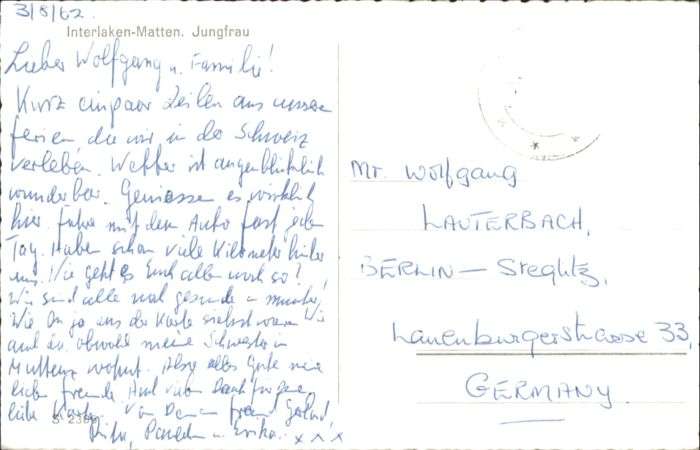 3/8/62
Interlaken-Matten. Jungfrau
Lieber Wolfgang u. Familie!
Kurz einpaar Zeilen aus unseren
ferien, die wir in der Schweiz
verleben. Wetter ist augenblicklich
wunderbar. Geniessen es wirklich
hier. Fahre mit dem Auto fast jeden
Tag. Haben schon viele Kilometer hinter
uns. Wie geht es Euch allen noch so?
Wir sind alle noch gesund u. munter,
Wie Du ja aus der Karte siehst waren wir
auch da, obwohl meine Schwester in
Muttenz wohnt. Also alles Gute mein
lieber freund. Und vielen Dank
liebe Karte. Von Deinem freund
u. Erika. x x x
Mr. Wolfgang
LAUTERBACH,
BERLIN — Steglitz,
Lauenburgerstrasse 33,
GERMANY.